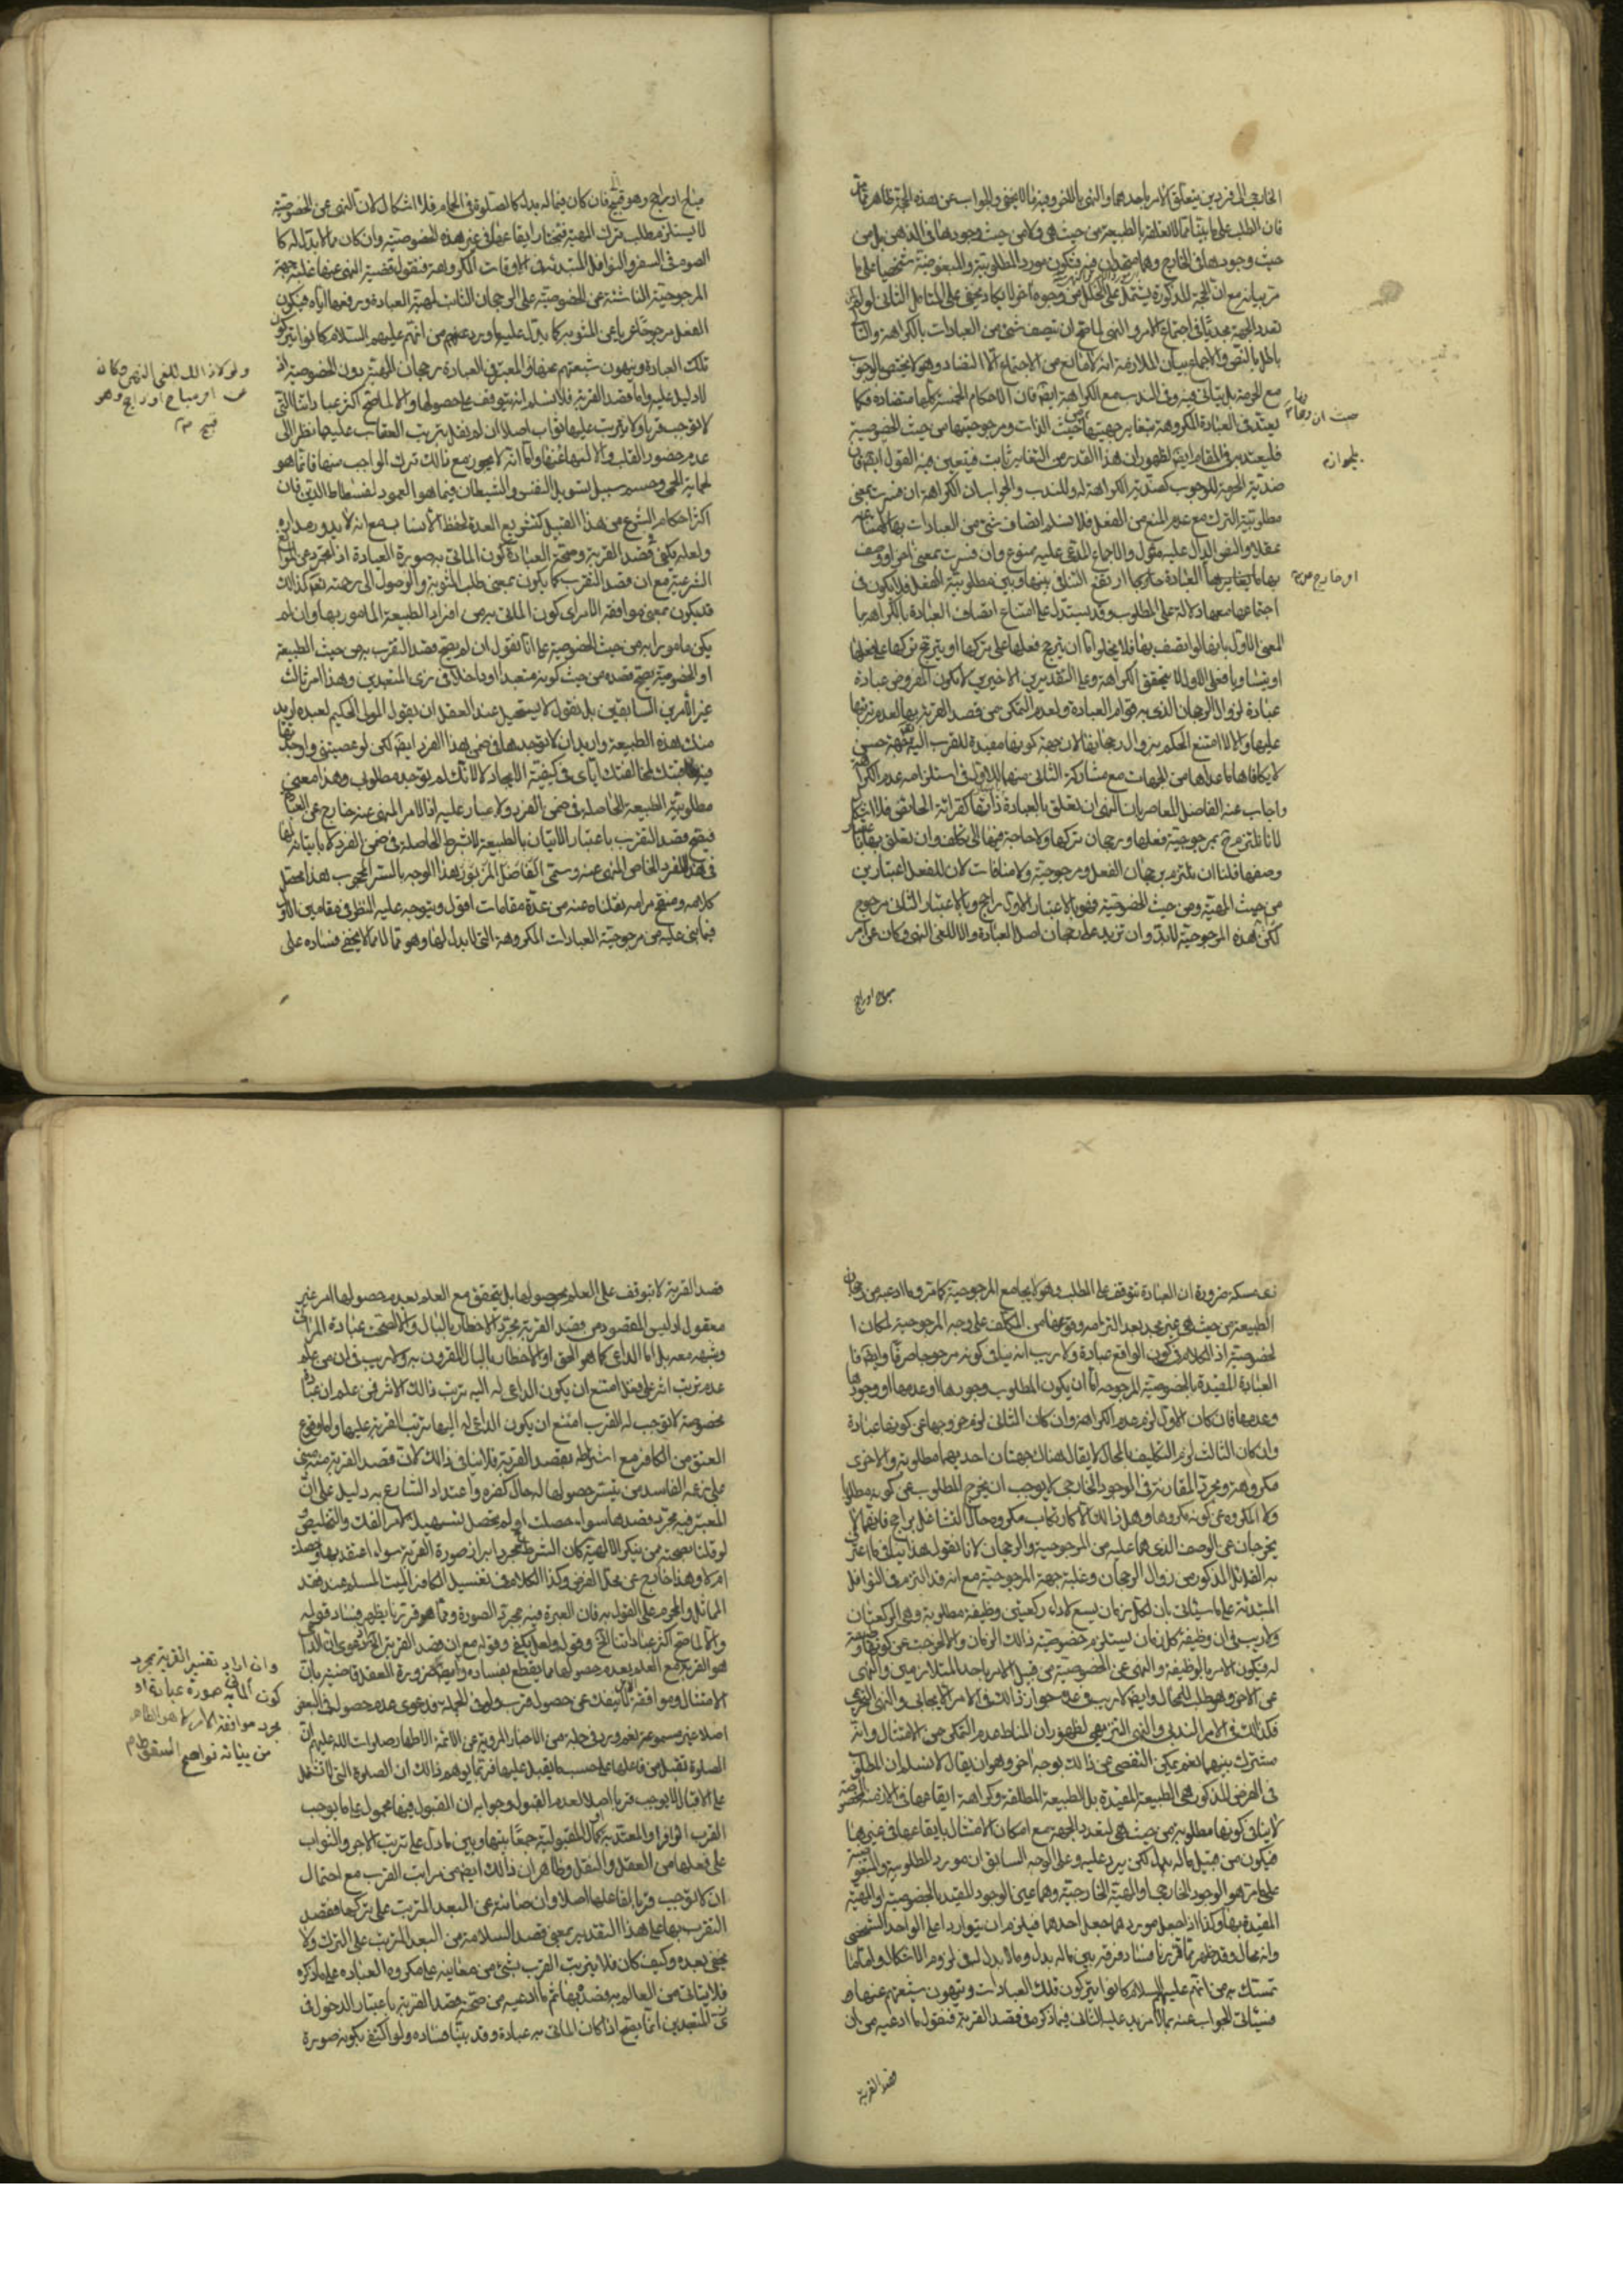 الخارجى الى فردين يتعلق الامر باحدهما والنهى بالاخر وفيه ما لا يخفى والجواب عن هذه الحجة ظاهر مما مر
فان الطلب على ما بينا انما يتعلق بالطبيعة من حيث هى ولا من حيث وجودها فى الذهن بل من
حيث وجودها فى الخارج وهما متحدان فيه فيكون مورد المطلوبية والمبغوضية شخصيا على ما
مر بيانه مع ان الحجة المذكورة يشتمل على الخلل من وجوه اخر لا يكاد يخفى على المتامل الثانى لو لم
تعدد الجهة مجديا فى اجتماع الامر والنهى لما صح ان يتصف شئ من العبادات بالكراهة والتالى
باطل بالنص والاجماع بيان الملازمة انه لا مانع من الاجتماع الا التضاد وهو لا يختص بالوجوب
مع الحرمة بل يتاتى فيه وفى الندب مع الكراهة ايضا فان الاحكام الخمسة كلها متضادة فكما
يعتد فى العبادة المكروهة بتغاير جهتيها من حيث الذات ومرجوحيتها من حيث الخصوصية
فليعتد به فى المقام ايضا لظهور ان هذا القدر من التغاير ثابت فيتعين فيه القول ايضا فان
ضدية الحرمة للوجوب كضدية الكراهة له وللندب والجواب ان الكراهة ان فسرت بمعنى
مطلوبية الترك مع عدم المنع من الفعل فلا نسلم اتصاف شئ من العبادات بها
عقلا والنص الدال عليه مأول والاجماع المدعى عليه ممنوع وان فسرت بمعنى اخر او وصف
بها ما يغايرها العبادة ارتفع التنافى بينها وبين مطلوبية الفعل فلا يكون فى
اجتماعها معها دلالة على المطلوب وقد يستدل على امتناع اتصاف العبادة بالكراهة با
المعنى الاول بانها لو اتصفت بها فلا يخلو اما ان يترجح فعلها على تركها او يترجح تركها على فعلها
او يتساويا فعلى الاول لا يتحقق الكراهة وعلى التقديرين الاخيرين لا يكون المفروض عبادة
عبادة لزوال الرجحان الذى به قوام العبادة ولعدم التمكن من قصد القربة بها لعدم ترتبها
عليها والا لامتنع الحكم بزوال رجحانها لان جهة كونها مفيدة للقرب اليه تعالى جهة حسن
لا يكافاها ما عداها من الجهات مع مشاركة الثانى منها للاول فى استلزامه عدم الكراهة
واجاب عنه الفاضل المعاصر بان النهى ان تعلق بالعبادة ذاتها كقرائة الحائض فلا اشكال
لانا نلتزم ح بمرجوحية فعلها ورجحان تركها ولا حاجة فيها الى تكلف وان تعلق بها باعتبار
وصفها قلنا ان نلتزم برجحان الفعل ومرجوحيته ولا منافات لان للفعل اعتبارين
من حيث المهية ومن حيث الخصوصية فهو بالاعتبار الاول راجح وبالاعتبار الثانى مرجوح
لكن هذه المرجوحية لا بد وان تزيد على رجحان اصل العبادة والا للغى النهى وكان عن امر
مباح او راجح
مباح او راجح وهو قبيح فان كان فيما له بدل كالصلوة فى الحمام فلا اشكال لان النهى عن الخصوصية
لا يستلزم طلب ترك المهية فتختار ايقاعها فى غير هذه الخصوصية وان كان مما لا بدل له كا
الصوم فى السفر والنوافل المبتدئة فى الاوقات المكروهة فنقول قضية النهى عنها غلبة جهة
المرجوحية الناشئة عن الخصوصية على الرجحان الثابت لمهية العبادة ورفعها اياه فيكون
الفعل مرجوحا عريا عن المثوبة كما يدل عليه ما ورد عنهم من انهم عليهم السلام كانوا يتركون
تلك العبادة وينهون شيعتهم عنها والمعتبر فى العبادة رجحان المهية دون الخصوصية اذ
لا دليل عليه واما قصد القربة فلا نسلم انه يتوقف على حصولها والا لما صح اكثر عباداتنا التى
لا توجب قربا ولا يترتب عليها ثواب اصلا ان لم نقل بترتب العقاب عليها نظرا الى
عدم حضور القلب والالتهاء عنها واما انه لا يجوز مع ذلك ترك الواجب منها فانما هو
لحماية الحمى وحسم سبيل تسويل النفس والشيطان فيما هو العمود لفسطاط الدين فان
اكثر احكام الشرع من هذا القبيل كتشريع العدة لحفظ الانساب مع انه لا يدور مداره
ولعله يكفى فى قصد القربة وصحة العبادة كون الماتى به صورة العبادة اذا تجرد عن الموانع
الشرعية مع ان قصد التقرب كما يكون بمعنى طلب المثوبة والوصول الى رحمته تعالى كذلك
قد يكون بمعنى موافقة الامر اى كون الماتى به من افراد الطبيعة المامور بها وان لم
يكن مامورا به من حيث الخصوصية على انا نقول ان لم يصح قصد التقرب به من حيث الطبيعة
او الخصوصية يصح قصده من حيث كونه متعبدا وداخلا فى زى المتعبدين وهذا امر ثالث
غير الامرين السابقين بل نقول لا يستحيل عند العقل ان يقول المولى الحكيم لعبده اريد
منك هذه الطبيعة واريد ان لا توجدها فى ضمن هذا الفرد ايضا لكن لو عصيتنى واوجدتها
فيه عاقبتك لمخالفتك اياى فى كيفية الايجاد لا لانك لم توجد مطلوبى وهذا معنى
مطلوبية الطبيعة الحاصلة فى ضمن الفرد ولا غبار عليه اذ الامر المنهى عنه خارج عن العبادة
فيصح قصد التقرب باعتبار الاتيان بالطبيعة لا بشرط الحاصلة فى ضمن الفرد لا باتيانها
فى هذا الفرد الخاص المنهى عنه وسمى الفاضل المزبور هذا الوجه بالستر المحجوب هذا محصل
كلامه ومنقح مرامه نقلناه عنه من عدة مقامات اقول ويتوجه عليه النظر فى مقامين الاول
فيما بنى عليه من مرجوحية العبادات المكروهة التى لا بدل لها وهو مما لا يخفى فساده على
ولو لا ذلك للغى النهى وكان
عن امر مباح او راجح وهو
قبيح
الطبيعة من حيث هى غير مجد بعد التزامه وقوعها من المكلف على وجه المرجوحية لمكان ا
لخصوصية اذ الكلام فى كون الواقع عبادة ولا ريب انه ينافى كونه مرجوحا صرفا وايضا فا
العبادة المقيدة بالخصوصية المرجوحة اما ان يكون المطلوب وجودها او عدمها او وجودها
وعدمها فان كان الاول لزم عدم الكراهة وان كان الثانى لزم خروجها عن كونها عبادة
وان كان الثالث لزم التكليف بالمحال لا يقال هناك جهتان احديهما مطلوبة والاخرى
مكروهة ومجرد المقارنة فى الوجود الخارجى لا يوجب ان يخرج المطلوب عن كونه مطلوبا
ولا المكروه عن كونه مكروها وهل ذلك الا كارتكاب مكروه حال التشاغل براجح فانهما لا
يخرجان عن الوصف الذى هما عليه من المرجوحية والرجحان لانا نقول هذا ينافى ما اعترف
به القائل المذكور من زوال الرجحان وغلبة جهة المرجوحية مع انه قد التزم فى النوافل
المبتدئة على ما سياتى بان لكل زمان يسع لاداء ركعتين وظيفة مطلوبة وهى الركعتان
ولا ريب فى ان وظيفة كل زمان يستلزم خصوصية ذلك الزمان والا لخرجت عن كونها وظيفة
له فيكون الامر بالوظيفة والنهى عن الخصوصية من قبيل الامر باحد المتلازمين والنهى
عن الاخر وهو طلب للمحال وايضا لا ريب فى عدم جواز ذلك فى الامر الايجابى والنهى التحريمى
فكذلك فى الامر الندبى والنهى التنزيهى لظهور ان المناط عدم التمكن من الامتثال وانه
مشترك بينهما نعم يمكن التفصى عن ذلك بوجه اخر وهو ان يقال لا نسلم ان المطلوب
فى الفرض المذكور هى الطبيعة المقيدة بل الطبيعة المطلقة وكراهة ايقاعها فى الازمنة المخصوصة
لا ينافى كونها مطلوبة من حيث هى لتعدد الجهة مع امكان الامتثال بايقاعها فى غيرها
فيكون من قبيل ما له بدل لكن يرد عليه وعلى الوجه السابق ان مورد المطلوبية والمبغوضية
على ما مر هو الوجود الخارجى او المهية الخارجية وهما عين الوجود المقيد بالخصوصية او المهية
المقيدة بها وكذا اذا جعل مورد هما جعل احدهما فيلزم ان يتوارد على الواحد الشخصى
وانه محال وقد ظهر مما قررنا فساد فرقه بين ما له بدل وما لا بدل له فى لزوم الاشكال واما ما
تمسك به من انهم عليهم السلام كانوا يتركون تلك العبادات وينهون شيعتهم عنها
فسياتى الجواب عنه بما لا مزيد عليه الثانى فيما ذكره فى قصد القربة فنقول ما ادعيه من ان
قصد القربة
قصد القربة لا يتوقف على العلم بحصولها بل يتحقق مع العلم بعدم حصولها امر غير
معقول اذ ليس المقصود من قصد القربة مجرد الاخطار بالبال والا لصحت عبادة المرائى
وشبهه معه بل اما الداعى كما هو الحق او الاخطار بالبال المقرون به ولا ريب فى ان من علم
عدم ترتب اثر على فعل امتنع ان يكون الداعى له اليه ترتب ذلك الاثر فمن علم ان عبادة
مخصوصة لا توجب له القرب امتنع ان يكون الداعى له اليها ترتب القربة عليها واما وقوع
العتق من الكافر مع اشتراطه بقصد القربة فلا ينافى ذلك لان قصد القربة منه مبنى
على زعمه الفاسد من تيسر حصولها له حال كفره واعتداد الشارع به دليل على ان
المعتبر فيه مجرد قصدها سواء حصلت او لم تحصل لتسهيل امر الفك والتخليص
لو قلنا بصحته ممن ينكر الالهية كان الشرط مجرد ابراز صورة القربة سواء اعتقد بها
ام لا وهذا خارج عن محل الفرض وكذا الكلام فى تغسيل الكافر الميت المسلم عند فقد
المماثل والمحرم على القول به فان العبرة فيه بمجرد الصورة ومما قررنا يظهر فساد قوله
والا لما صح اكثر عباداتنا الخ وقوله ولعل يكفى وقوله مع ان قصد القربة الخ فدعوى ان الداعى
هو القربة مع العلم بعدم حصولها مما يقطع بفساده وايضا ضرورة العقل قاضية بان
الامتثال وموافقة الامر لا ينفك عن حصول قرب ولو فى الجملة فدعوى عدم حصوله فى البعض
اصلا غير مسموعة نعم ورد فى جملة من الاخبار المروية عن الائمة الاطهار صلوات الله عليهم ان
الصلوة تقبل من فاعلها على حسب ما يقبل عليها فربما يوهم ذلك ان الصلوة التى لا تشتمل
على الاقبال لا يوجب قربا اصلا لعدم القبول وجوابه ان القبول فيها محمول على ما يوجب
القرب الوافر او المعتد به او كمال المقبولية جمعا بينها وبين ما دل على ترتب الاجر والثواب
على فعلها من العقل والنقل وظاهر ان ذلك ايضا من مراتب القرب مع احتمال
ان لا توجب قربا لفاعلها اصلا وان صانته عن البعد المترتب على تركها فقصد
التقرب بها على هذا التقدير بمعنى قصد السلامة من البعد المترتب على الترك ولا
يخفى بعده وكيف كان فلا يترتب القرب بشئ من معانيه على مكروه العبادة على ما ذكره
فلا يتاتى من العالم به قصده بها ثم ما ادعيه من صحة قصد القربة باعتبار الدخول فى
زى المتعبدين انما يصح اذا كان الماتى به عبادة وقد بينا فساده ولو اكتفى بكونه صورة
وان اراد تفسير القربة بمجرد
كون الماتى به صورة عبادة او
مجرد موافقة الامر كما هو الظاهر
من بيانه